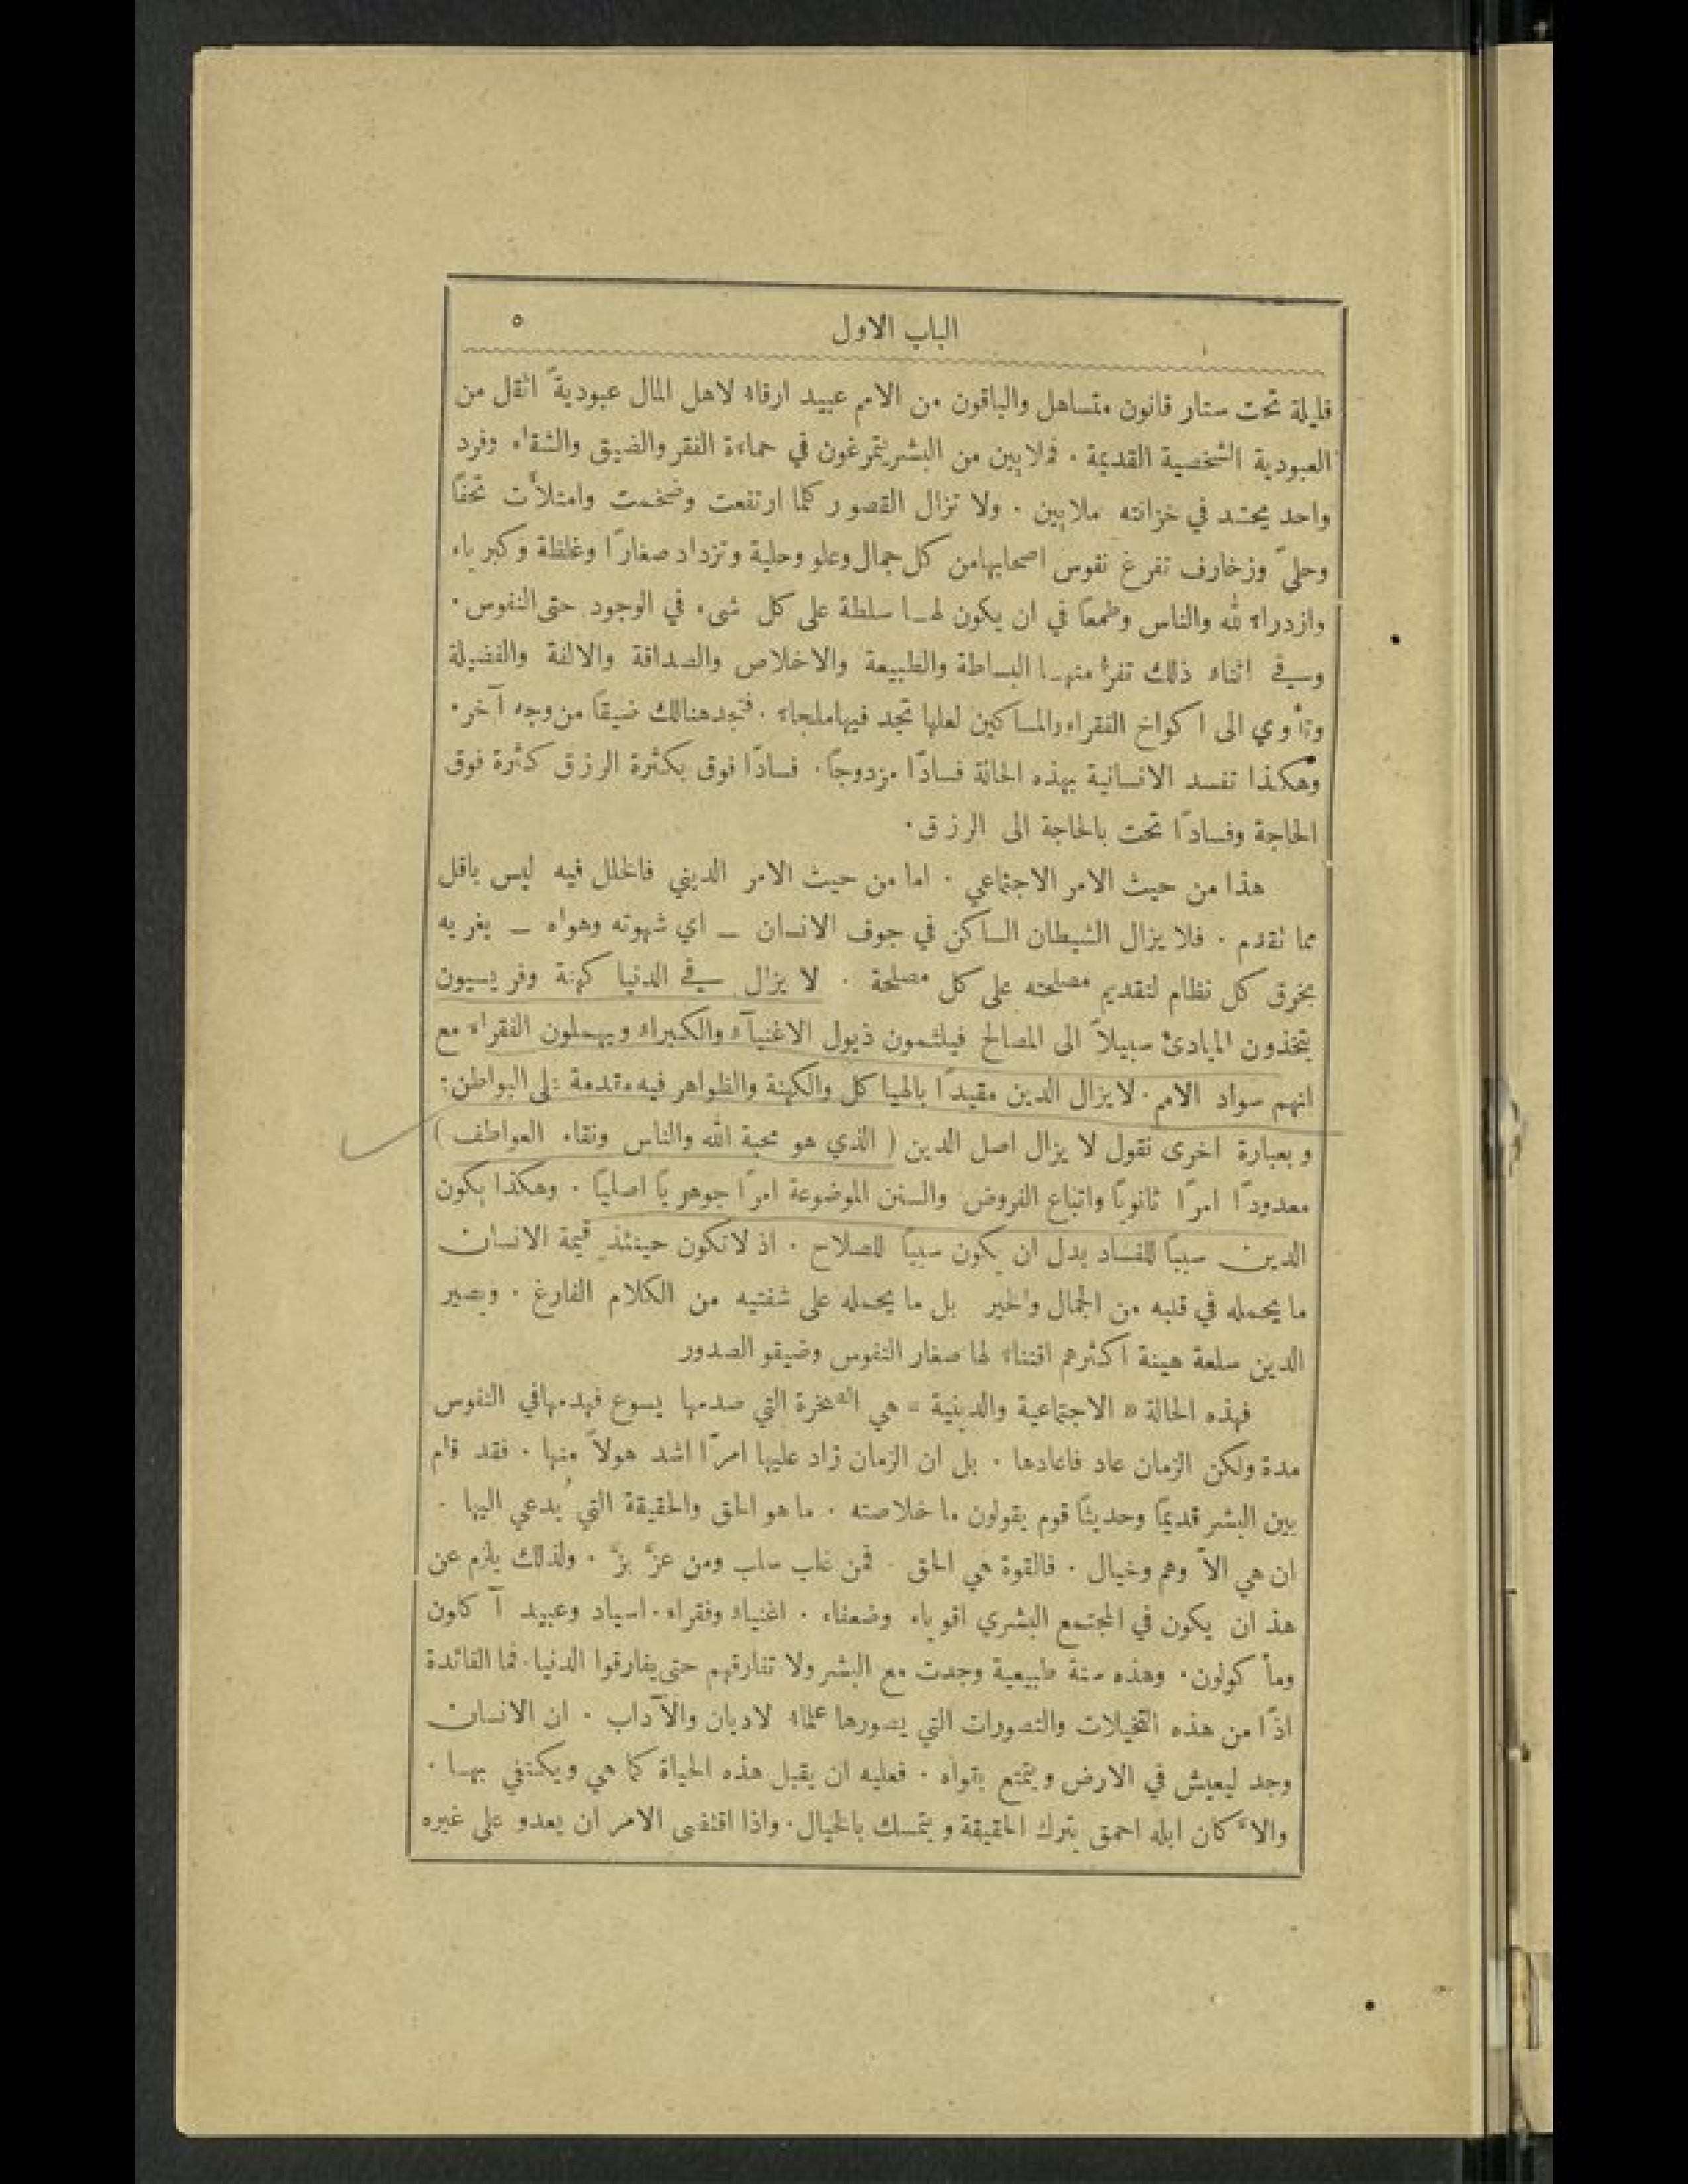 الباب الاول ٥
قليلة تحت ستار قانون متساهل والباقون من الامم عبيد ارقاء لاهل المال عبودية ً اثقل من
العبودية الشخصية القديمة . فملايين من البشر يتمرغون في حماءة الفقر والضيق والشقاء وفرد
واحد يحشد في خزانته ملايين . ولا تزال القصور كلما ارتفعت وضخمت وامتلأت تحفاً
وحلىّ وزخارف تفرغ نفوس اصحابها من كل جمال وعلو وحلية وتزداد صغارًا وغلظة وكبرياء
وازدراء لله والناس وطمعاً في ان يكون لها سلطة على كل شيء في الوجود حتى النفوس .
وفي اثناء ذلك تفرُّ منها البساطة والطبيعة والاخلاص والصداقة والالفة والفضيلة
وتأوي الى اكواخ الفقراء والمساكين لعلها تجد فيها ملجاء . فتجد هنالك ضيقاً من وجه آخر .
وهكذا تفسد الانسانية بهذه الحالة فسادًا مزدوجاً . فسادًا فوق بكثرة الرزق كثرة فوق
الحاجة وفسادًا تحت بالحاجة الى الرزق .
هذا من حيث الامر الاجتماعي . اما من حيث الامر الديني فالخلل فيه ليس باقل
مما تقدم . فلا يزال الشيطان الساكن في جوف الانسان ـ اي شهوته وهواه ـ يغريه
بخرق كل نظام لتقديم مصلحته على كل مصلحة . لا يزال في الدنيا كهنة وفريسيون
يتخذون المبادئ سبيلاً الى المصالح فيلثمون ذيول الاغنيآء والكبراء ويهملون الفقراء مع
انهم سواد الامم . لا يزال الدين مقيدًا بالهياكل والكهنة والظواهر فيه متقدمة على البواطن :
وبعبارة اخرى نقول لا يزال اصل الدين ( الذي هو محبة الله والناس ونقاء العواطف )
معدودًا امرًا ثانوياً واتباع الفروض والسنن الموضوعة امرًا جوهرياً اصلياً . وهكذا يكون
الدين سبباً للفساد بدل ان يكون سبباً للصلاح . اذ لا تكون حينئذٍ قيمة الانسان
ما يحمله في قلبه من الجمال والخير بل ما يحمله على شفتيه من الكلام الفارغ . ويصير
الدين سلعة هينة اكثرهم اقتناء لها صغار النفوس وضيقو الصدور
فهذه الحالة « الاجتماعية والدينية » هي الصخرة التي صدمها يسوع فهدمها في النفوس
مدة ولكن الزمان عاد فاعادها . بل ان الزمان زاد عليها امرًا اشد هولاً منها . فقد قام
بين البشر قديماً وحديثاً قوم يقولون ما خلاصته . ما هو الحق والحقيقة التي يُدعى اليها .
ان هي الاّ وهم وخيال . فالقوة هي الحق . فمن غلب سلب ومن عزَّ بزَّ . ولذلك يلزم عن
هذ ان يكون في المجتمع البشري اقوياء وضعفاء . اغنياء وفقراء . اسياد وعبيد آكلون
ومأكولون . وهذه سنة طبيعية وجدت مع البشر ولا تفارقهم حتى يفارقوا الدنيا . فما الفائدة
اذًا من هذه التخيلات والتصورات التي يصورها علماء لاديان والآداب . ان الانسان
وجد ليعيش في الارض ويتمتع بقواه . فعليه ان يقبل هذه الحياة كما هي ويكتفي بها .
والاّ كان ابله احمق يترك الحقيقة ويتمسك بالخيال . واذا اقتضى الامر ان يعدو على غيره